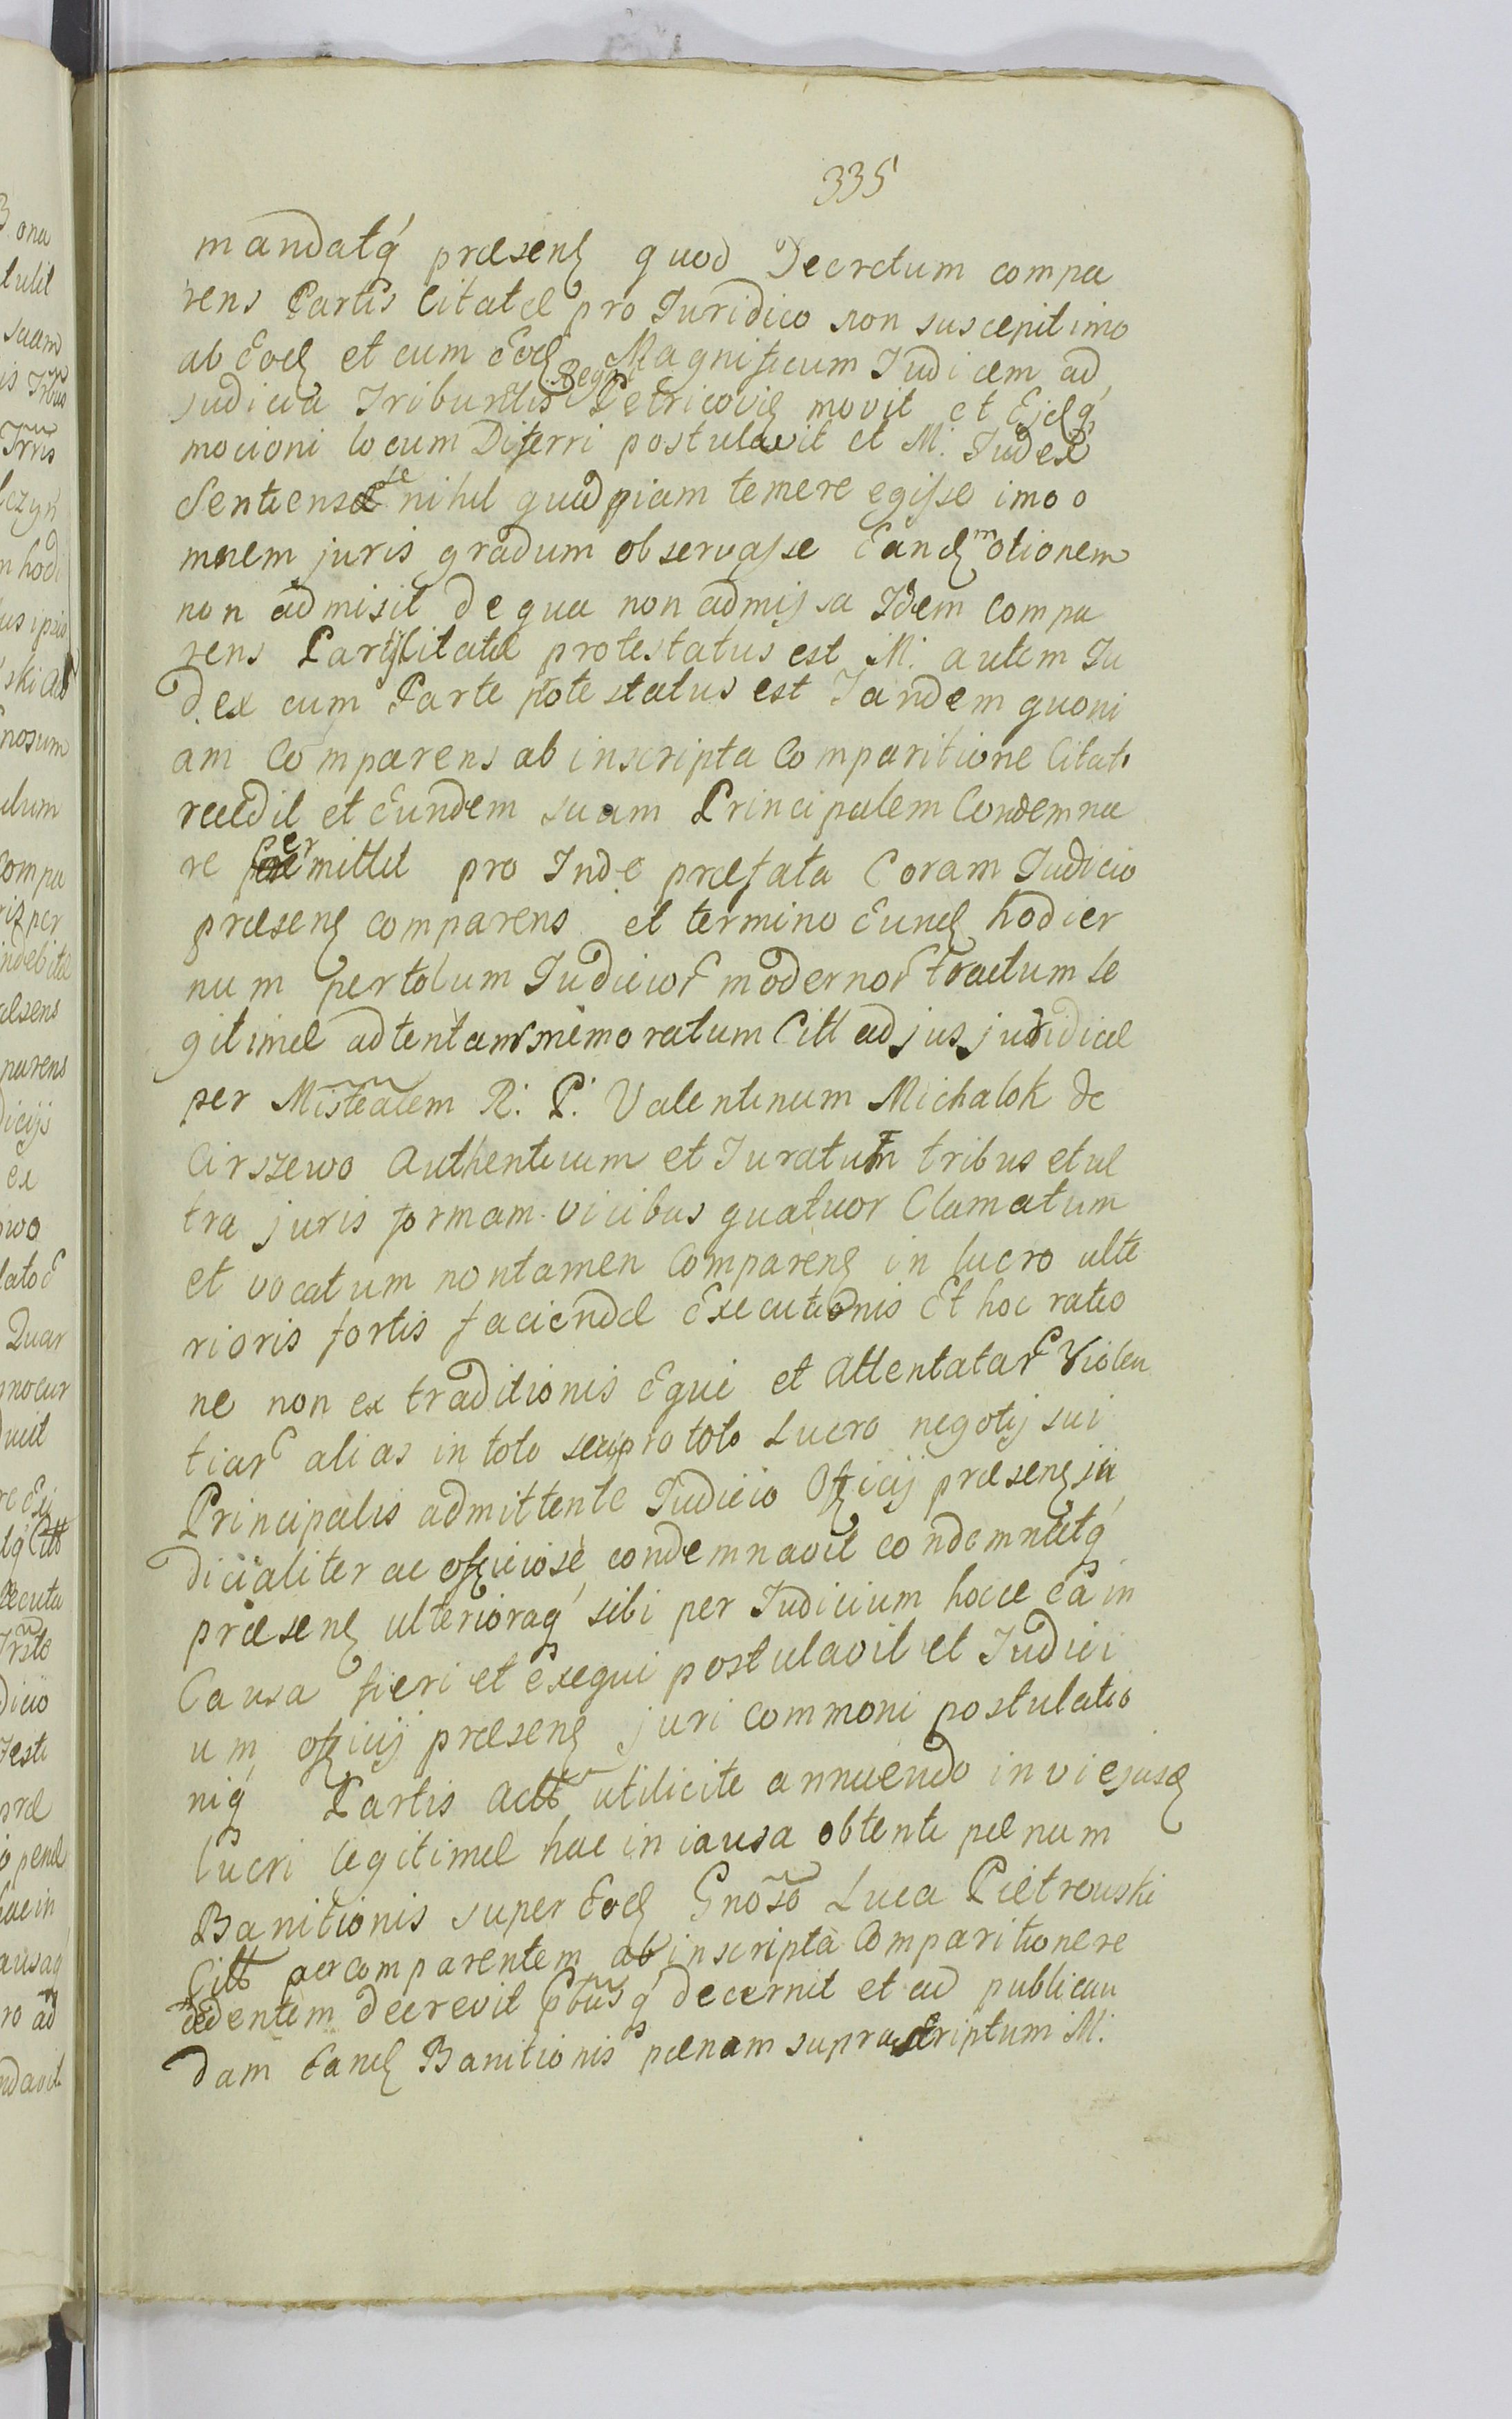 335
mandatq́ præsenꝭ quod Decretum compa
rens Partis Citatæ pro Juridico non suscepit imo
ab Eodꝭ et cum Eodꝭ Magnificum Judicem ad
judicia Tribunłis Regni Petricovieꝭ movit et Ejdꝭq́
mocioni locum Diferri postulavit et M: Judex
Sentiens se nihil quidpiam temere egisse imo o
mnem juris gradum observasse Eandꝭ motionem
non admisit de qua non admissa Idem Compa
rens Partis Citatæ protestatus est M: autem Ju
dex cum Parte protestatus est Tandem quoni
am Comparens ab inscripta Comparitione Citati
recedit et Eundem suam Principalem Condemna
re permittit pro Inde præfata Coram Judicio
præsenꝭ comparens et termino Eundꝭ hodier
num per totum Judicior modernor tractum le
gitimè adtentam memoratum Citt ad jus juridicæ
per Misteałem R: P: Valentinum Michalok de
Cirszewo Authenticum et Juratum tribus et ul
tra juris formam vicibus quatuor Clamatum
et vocatum non tamen Comparenꝭ in lucro ulte
rioris fortis faciendæ Executionis Et hoc ratio
ne non ex traditionis Equi et Attentatar Violen
tiar alias in toto seu pro toto Lucro negotij sui
Principalis admittente Judicio Officij præsenꝭ ju
dicialiter ac officiosè condemnavit condemnatq́
præsenꝭ ulterioraq́ sibi per Judicium hocce Ea in
Causa fieri et Exequi postulavit et Judici
um officij præsenꝭ juri commoni postulatio
niq́ Partis Actt utilicite annuendo in vi ejusdꝭ
lucri legitimè hac in causa obtenti pœnam
Banitionis super Eodꝭ Gnoso Luca Pietrowski
Citt per comparentem ab inscripta Comparitione re
cedentem decrevit Ptibusq́ decernit et ad publican
dam Eandꝭ Banitionis pœnam suprascriptum M: